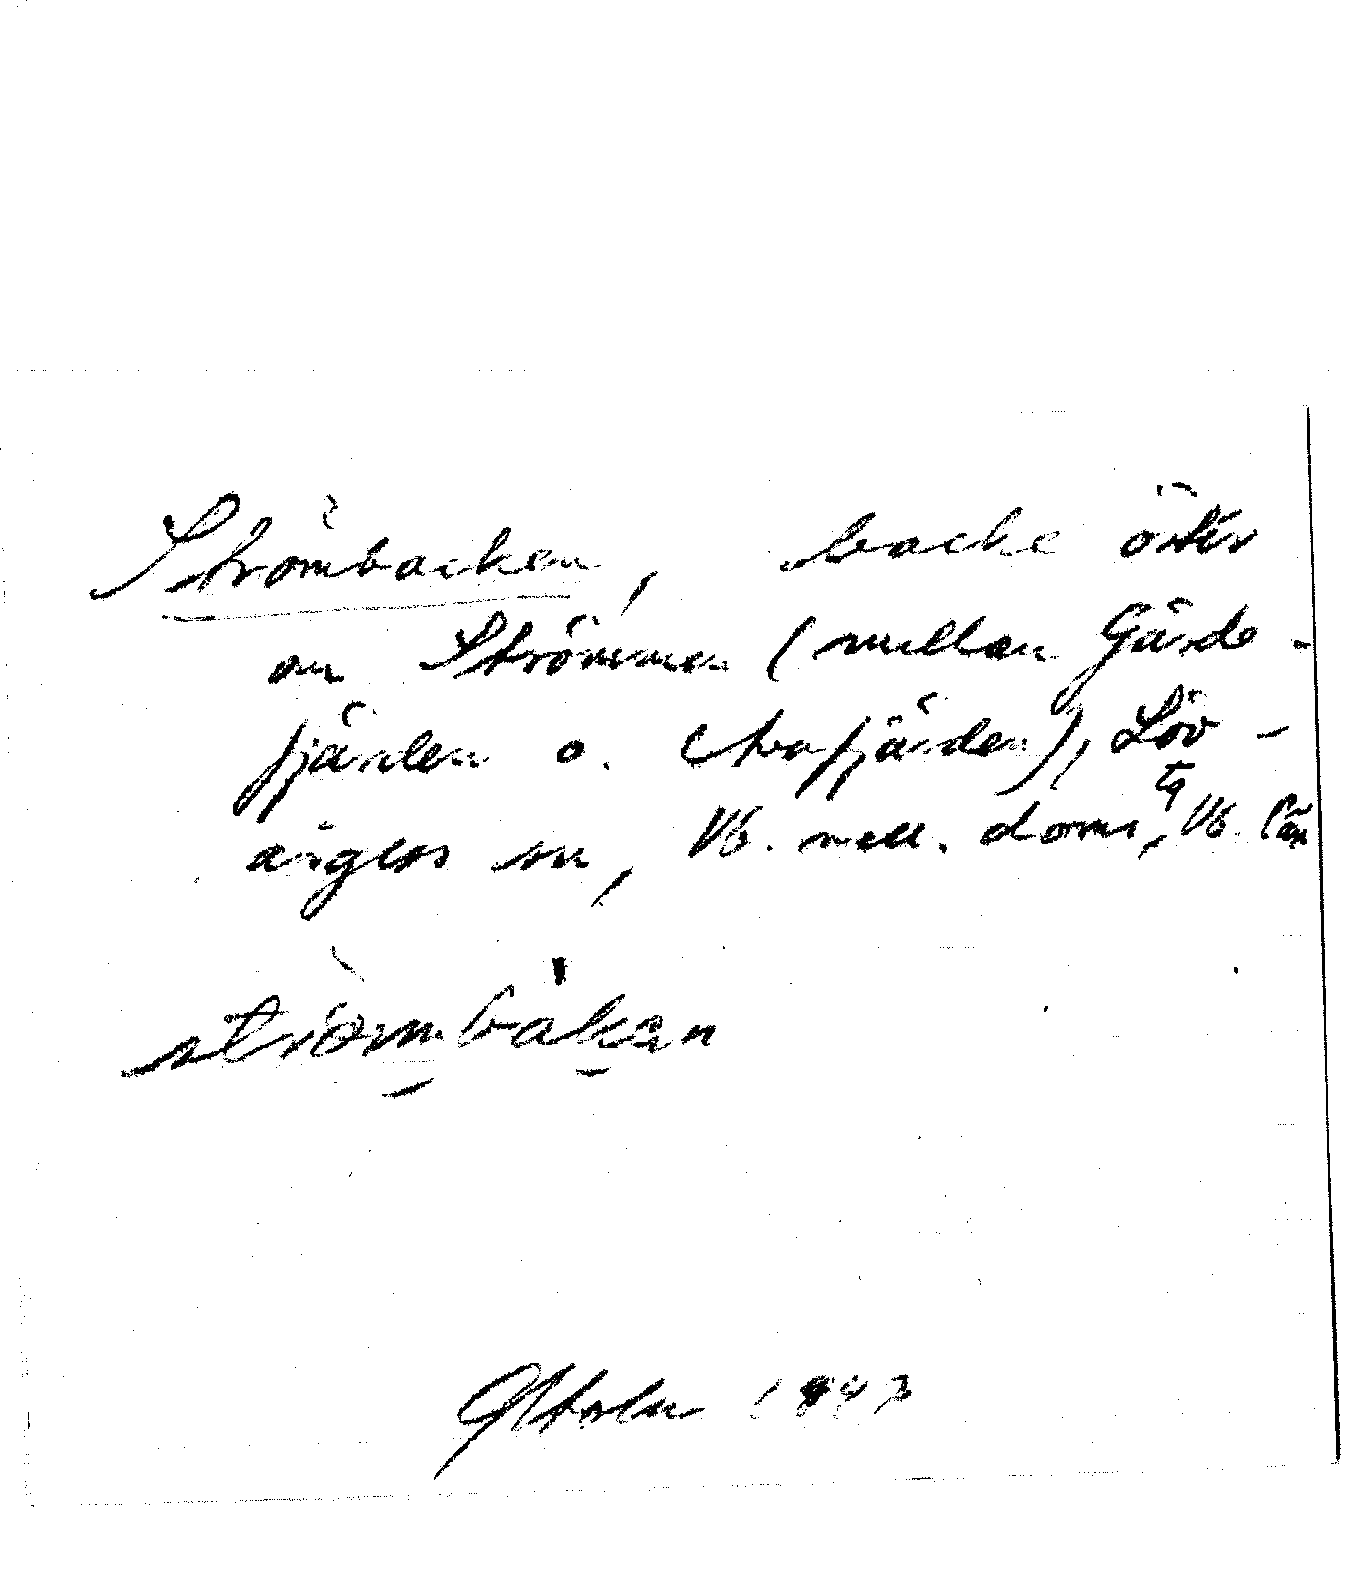 Strömbacken, backe öster
om Strömmen (mellan Gärde-
fjärden o. Avafjärden), Löv-
ångers sn, Vb. mell. doms
tg, Vb. län
strömbákan
1943